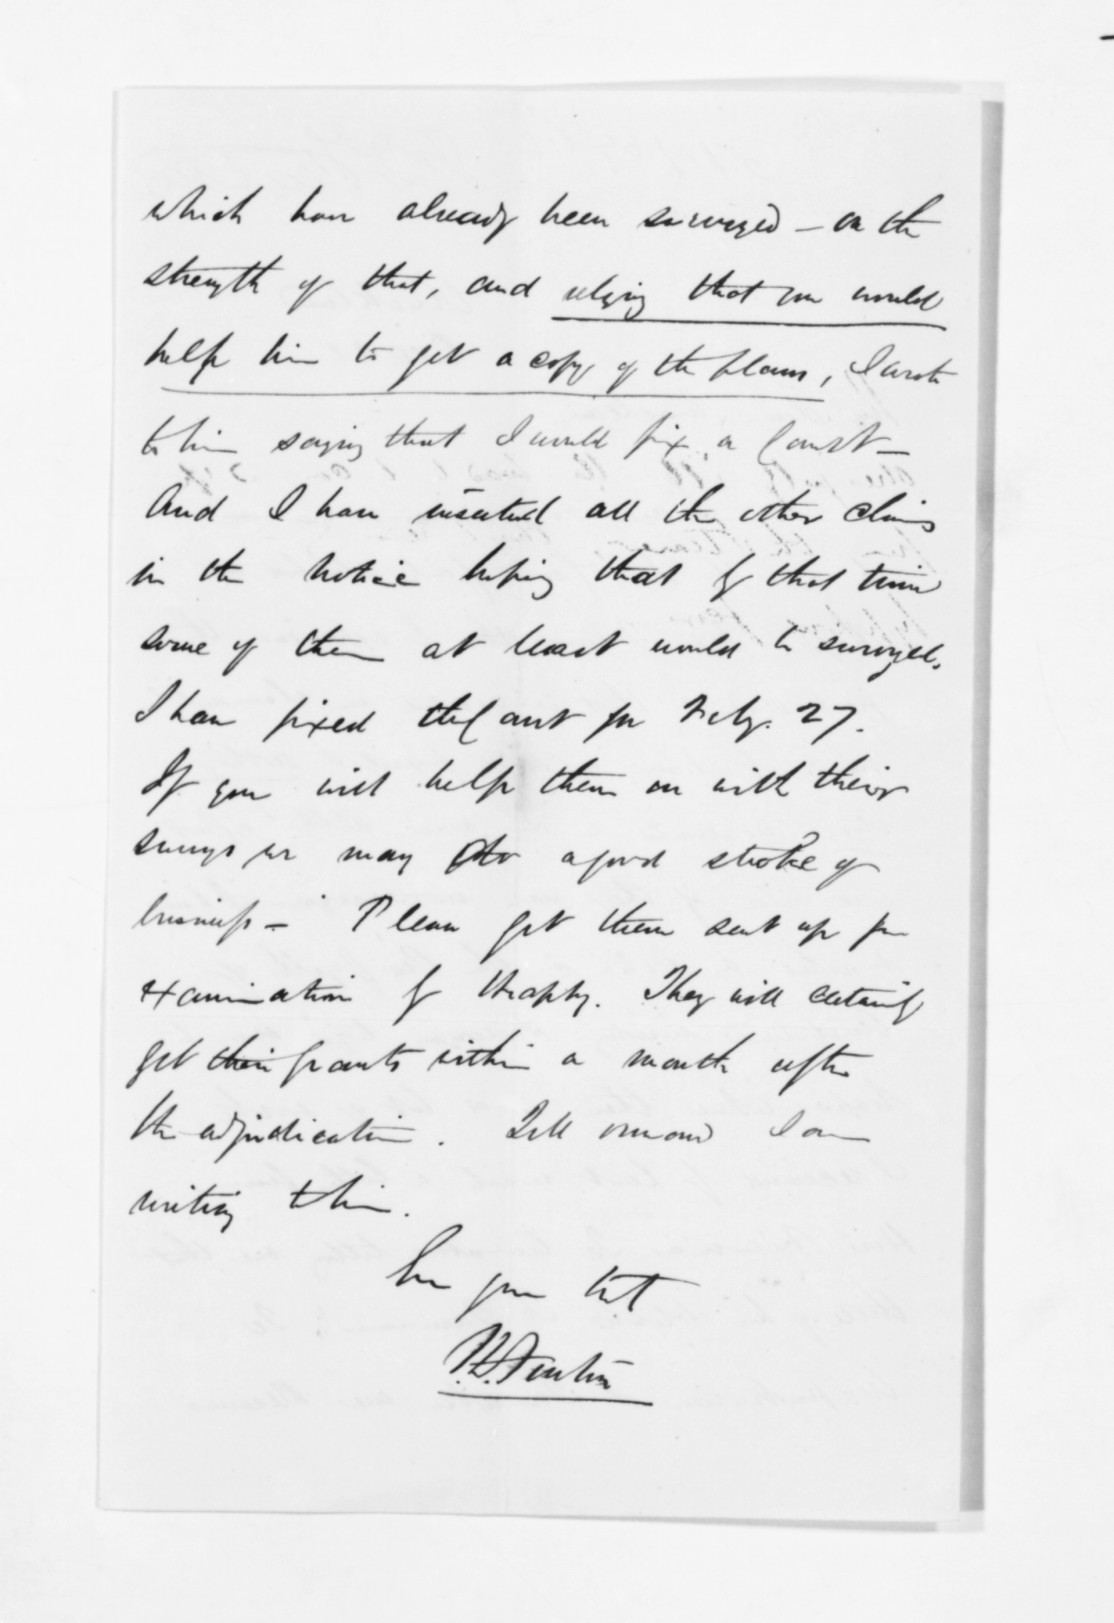 which have already been surveyed — on the
strength of that, and relying that you would
help him to get a copy of the plans, I wrote
to him saying that I would fix a Court —
And I have inserted all the other claims
in the notice hoping that by that time
some of them at least would be surveyed.
I have fixed the Court for Feby. 27.
If you will help them on with their
surveys we may do a good stroke of
business — Please get them sent up for
examination by Heaphy. They will certainly
get their grants within a month after
the adjudication. Tell Ormond I am
writing to him.
In great haste
F.D. Fenton